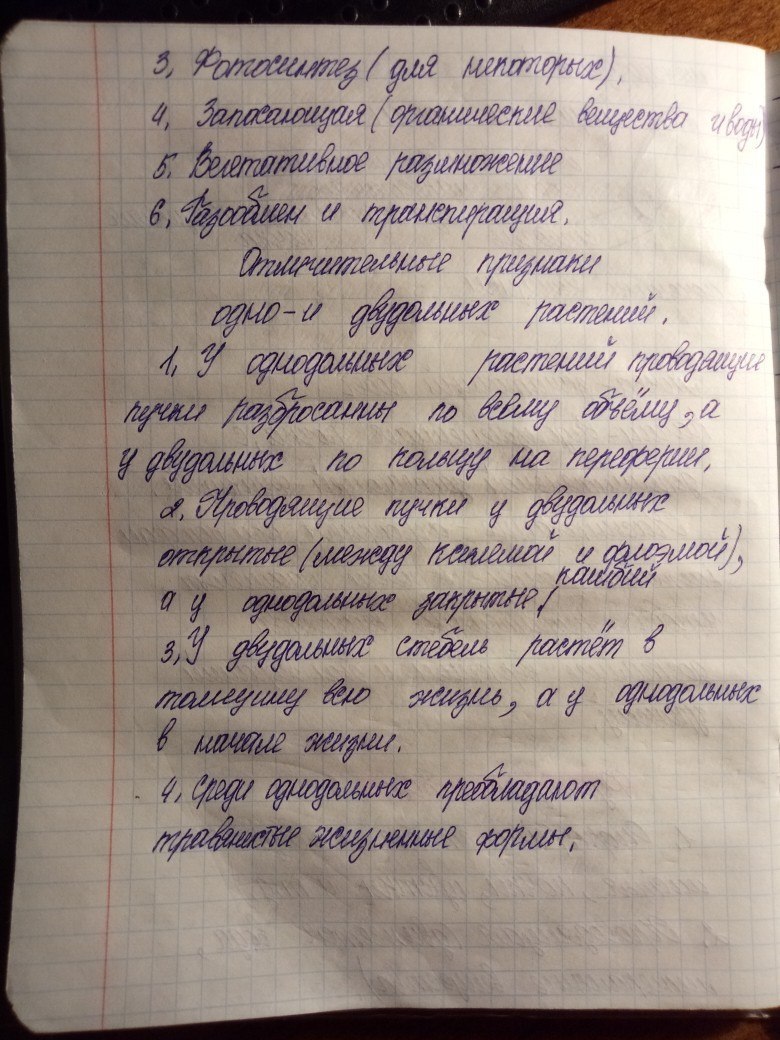 3. Фотосинтез (для некоторых).
4. Запасающая (органические вещества и воды)
5. Вегетативное размножение
6. Газообмен и транспирация.
Отличительные признаки
одно-и двудольных растений.
1. У однодольных растений проводящие
пучки разбросанны по всему объёму, а
у двудольных по кольцу на переферии.
2. Проводящие пучки у двудольных
открытые (между ксилемой и флоэмой),
камбий
а у однодольных закрытые.
3. У двудольных стебель растёт в
толщину всю жизнь, а у однодольных
в начале жизни.
4. Среди однодольных преобладают
травянистые жизненные формы.